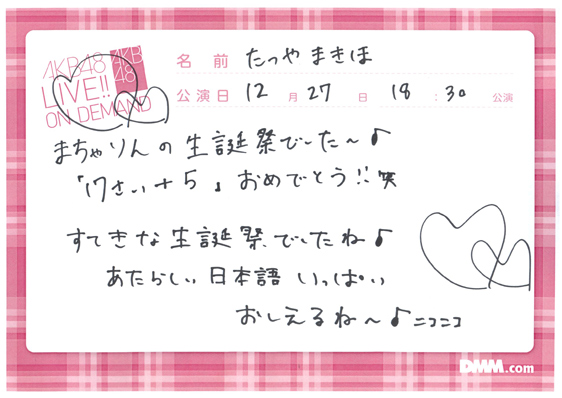 AKB48
LIVE!!
ON DEMAND
AKB
48
名前 たつや まきほ
公演日 12 月 27 日 18 : 30 公演
まちゃりんの生誕祭でした～♪
「17さい+5」おめでとう!! 笑
すてきな生誕祭でしたね♪
あたらしい日本語いっぱい
おしえるね～♪ニコニコ
DMM.com